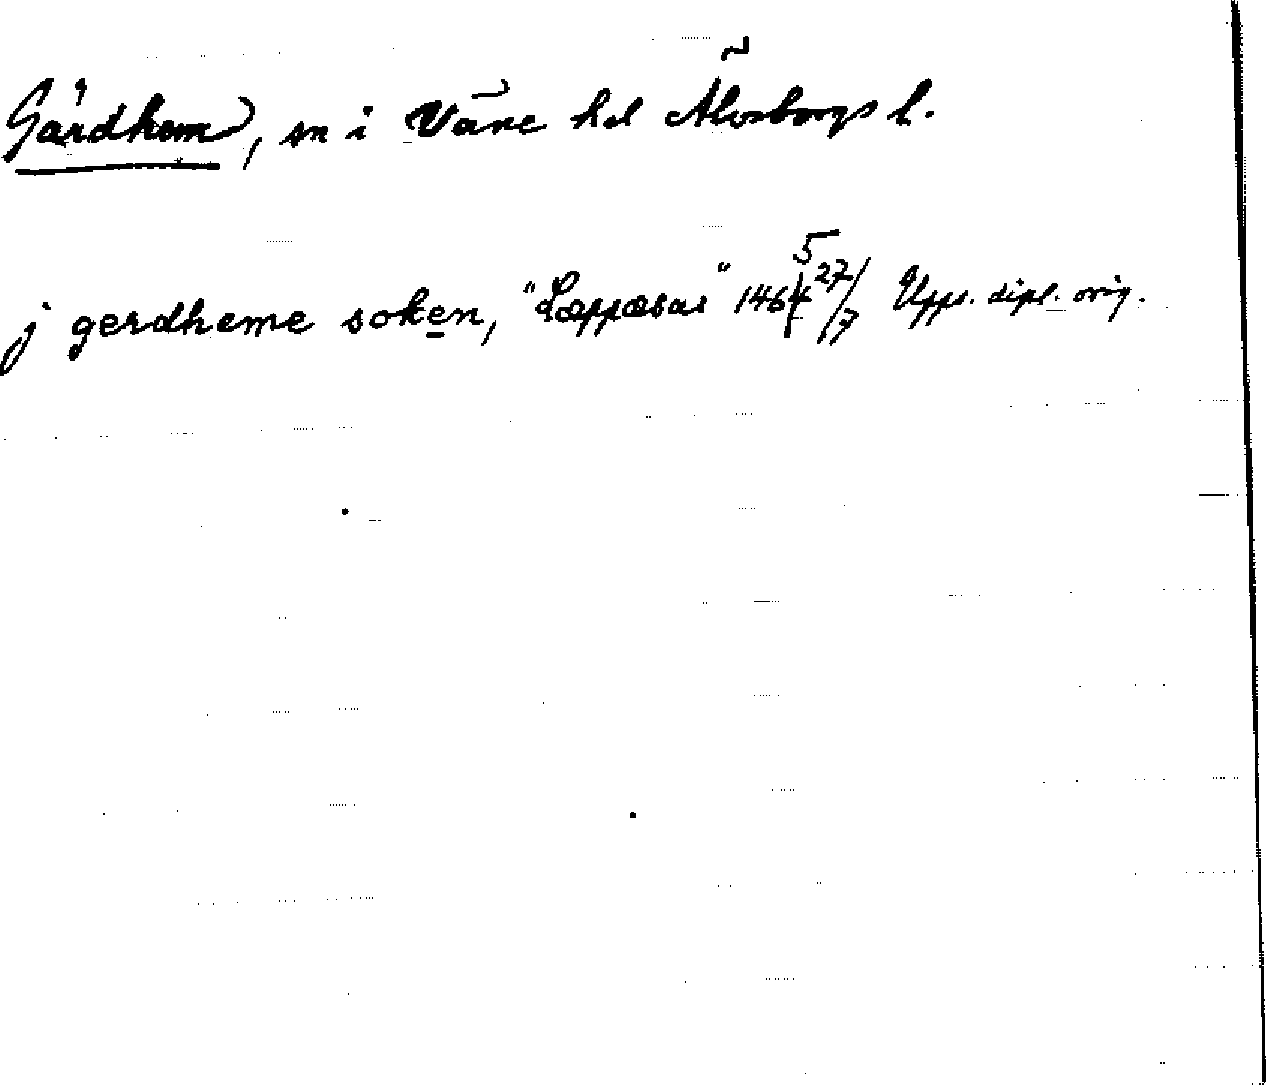 Gärdhem, sn i Väne hd Älvsborgs l.
j gerdheme soken, "Læppæsas" 1465 27/7 Upps. dipl. orig.